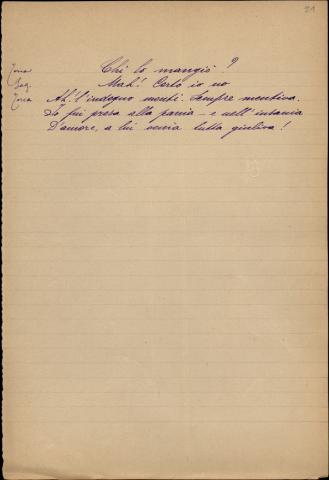 21
Zoria Chi lo mangiò?
Gaz. Mah! Certo io no
Zoria Ah! l'indegno mentì. Sempre mentiva.
Io fui presa alla pania - e nell'insania
D'amore, a lui venia tutta giuliva!